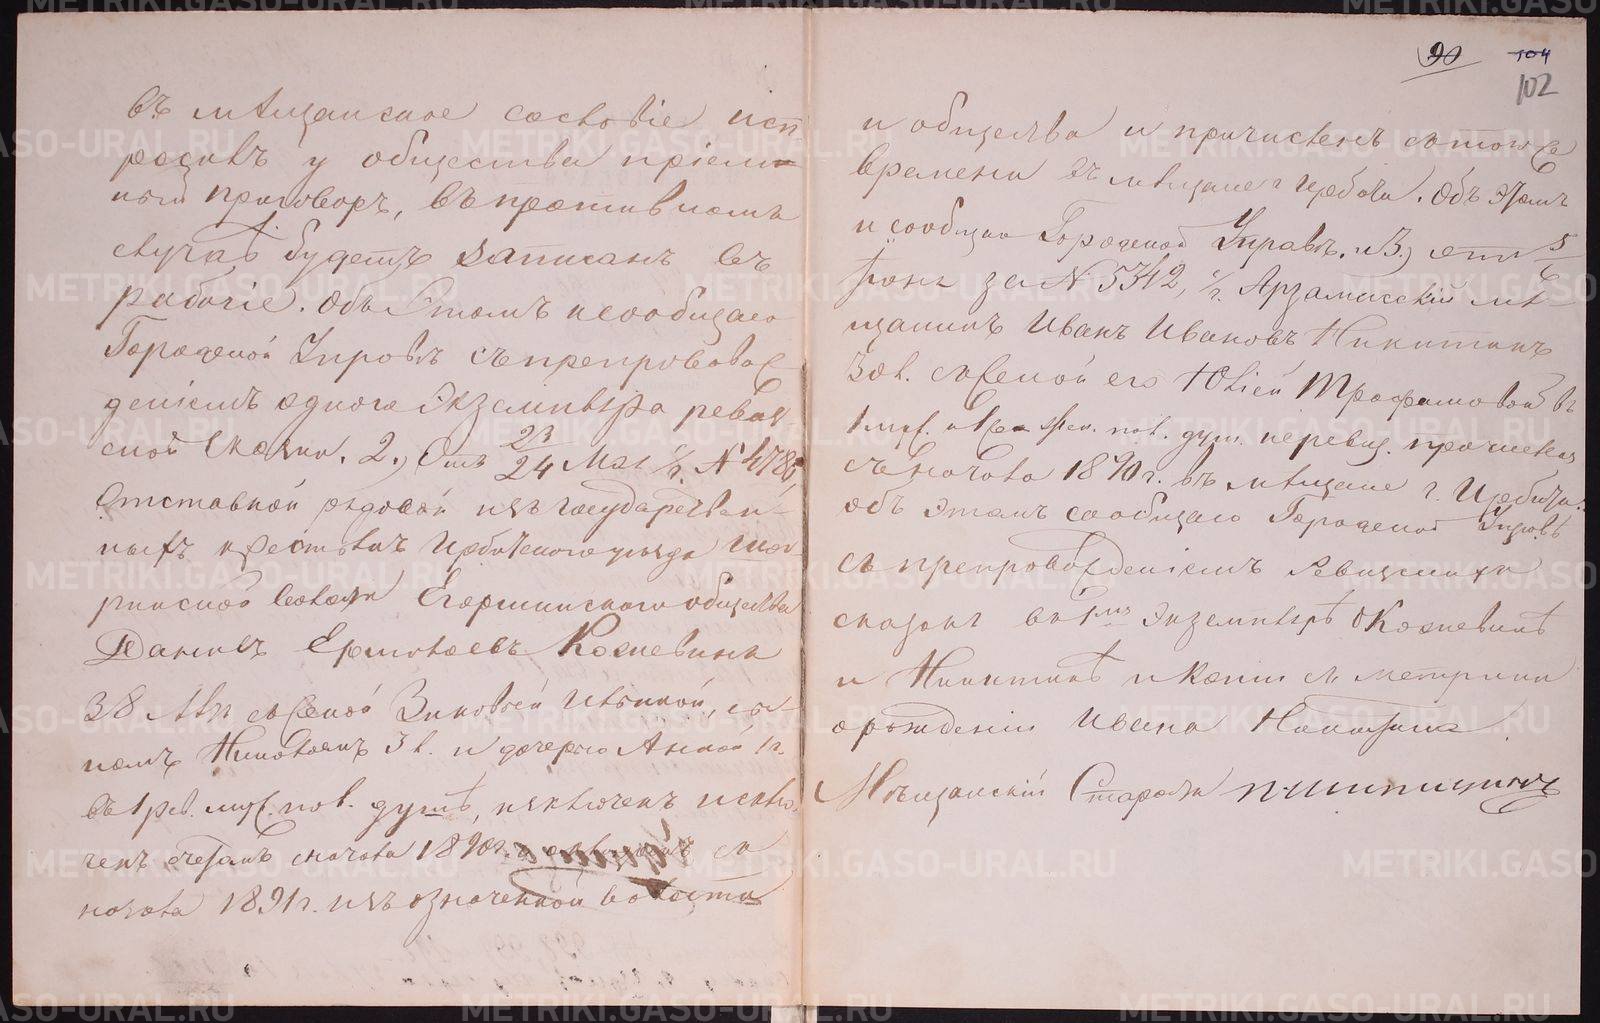 въ мѣщанское сословіе исп
росилъ у общества пріем
ный приговоръ, въ противномъ
случаѣ будетъ записанъ въ
рабочіе. Объ этомъ и сообщаю
Городской Управѣ съ препровож
деніемъ одного экземпляра ревиз
ской сказки. 2.) Отъ 23/24 Мая с/г. № 478
Отставной рядовой изъ государствен-
ныхъ крестьянъ Ирбитскаго уѣзда
волости Егоршинскаго общества
Данилъ Ермолаевъ Кожевинъ
38 лѣтъ съ женой Зиновьей сы-
номъ Николаемъ 3 л. и дочерью Анной 1 г.
въ 1 рев. муж. пол. душѣ, исключенъ исклю
ченъ счетомъ сначала 1890 г. и окладомъ съ
начала 1891 г. изъ означенной волости
90 104
102
и общества и причисленъ съ того же
времени въ мѣщане г. Ирбити. Объ этомъ
и сообщаю Городской Управѣ. и 3.) отъ 5/6
Іюня за № 5342, с/г. Арзамасскій мѣ
щанинъ Иванъ Ивановъ Никитинъ
30 л. съ женой его Юліей Трофимовой въ
1 муж. и 1 жен. пол. душ. перевед. причислен
съ начала 1890 г. въ мѣщане г. Ирбити.
объ этомъ сообщаю Городской Управѣ
съ препровожденіемъ ревизскихъ
сказокъ въ 1мъ экземплярѣ о Кожевинѣ
и Никитинѣ и копіи съ метрики
о рожденіи Ивана Никитина.
Мѣщанскій Староста П. Шипицинъ
METRIKI.GASO-URAL.RU